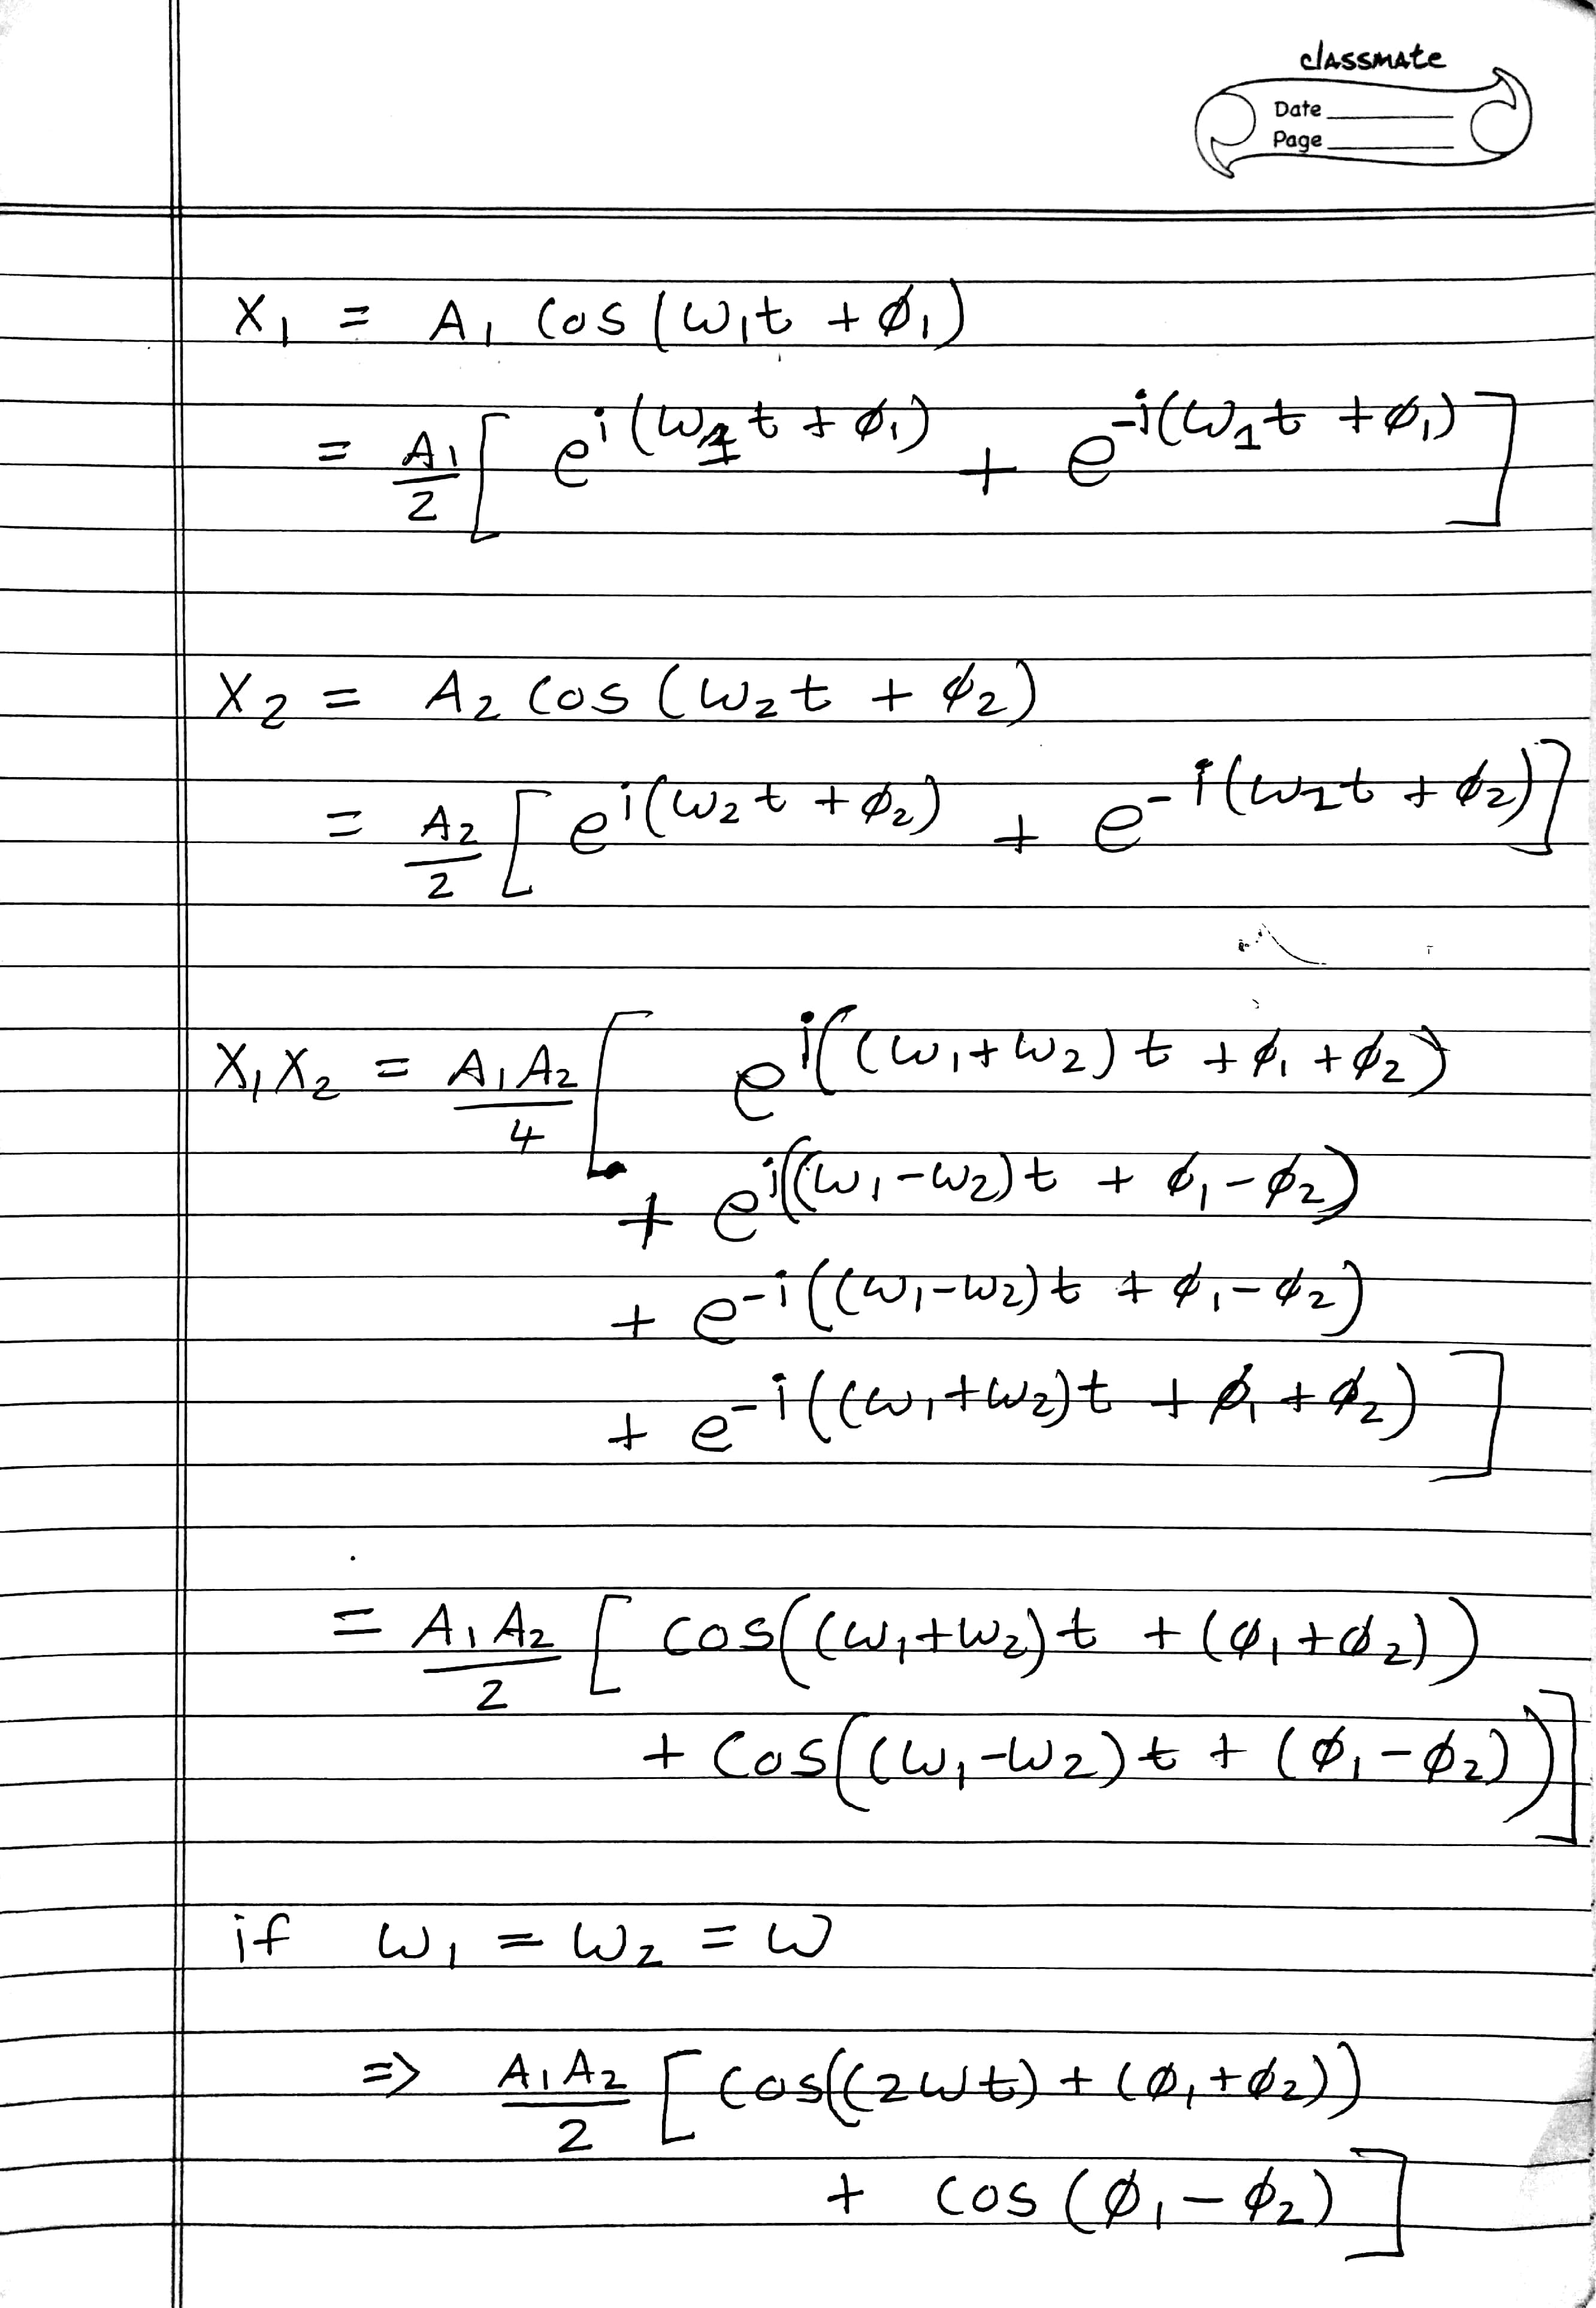 classmate
Date
Page
X₁ = A₁ cos(ω₁t + ø₁)
= A₁/2 [ e^i(ω₁t + ø₁) + e^-i(ω₁t + ø₁) ]
X₂ = A₂ cos(ω₂t + ø₂)
= A₂/2 [ e^i(ω₂t + ø₂) + e^-i(ω₂t + ø₂) ]
X₁X₂ = A₁A₂/4 [ e^i((ω₁+ω₂)t + ø₁ + ø₂)
+ e^i((ω₁-ω₂)t + ø₁-ø₂)
+ e^-i((ω₁-ω₂)t + ø₁-ø₂)
+ e^-i((ω₁+ω₂)t + ø₁ + ø₂) ]
= A₁A₂/2 [ cos((ω₁+ω₂)t + (ø₁+ø₂))
+ cos((ω₁-ω₂)t + (ø₁-ø₂)) ]
if ω₁ = ω₂ = ω
=> A₁A₂/2 [ cos((2ωt) + (ø₁+ø₂))
+ cos(ø₁-ø₂) ]